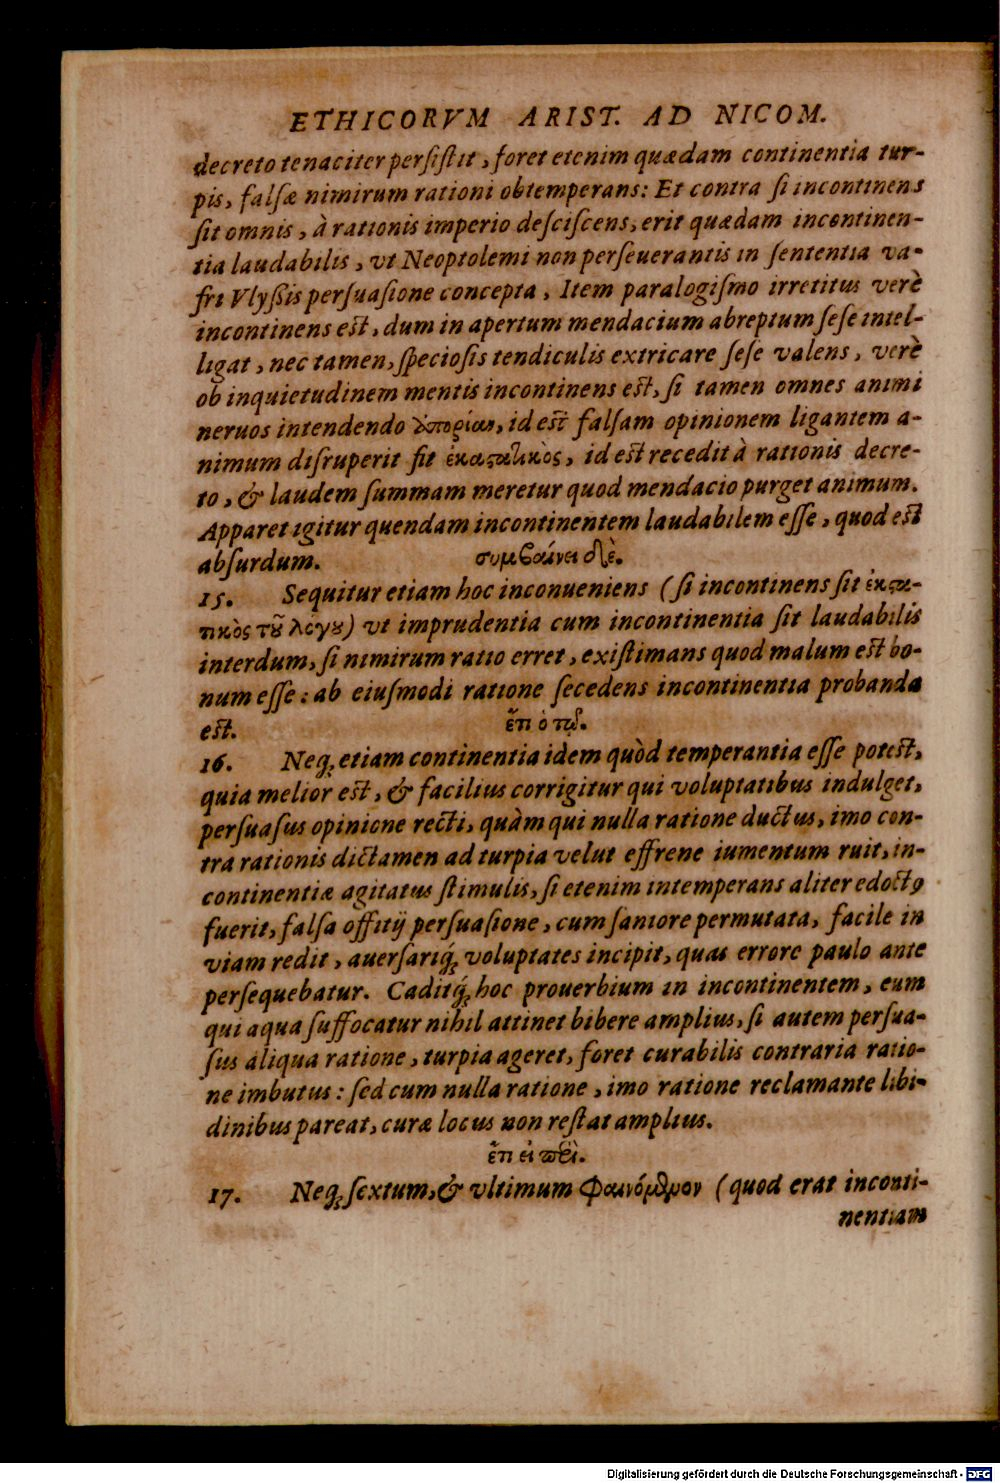 ETHICORVM ARIST. AD NICOM.
decreto tenaciter persistit, foret etenim quædam continentia tur-
pis, falsæ nimirum rationi obtemperans: Et contra si incontinens
sit omnis, à rationis imperio desciscens, erit quædam incontinen-
tia laudabilis, vt Neoptolemi non perseuerantis in sententia va-
fri Vlyßis persuasione concepta, Item paralogismo irretitus verè
incontinens est, dum in apertum mendacium abreptum sese intel-
ligat, nec tamen, speciosis tendiculis extricare sese valens, verè
ob inquietudinem mentis incontinens est, si tamen omnes animi
neruos intendendo ἀπορίαν, id est falsam opinionem ligantem a-
nimum disruperit fit ἐκστατικὸς, id est recedit à rationis decre-
to, & laudem summam meretur quod mendacio purget animum.
Apparet igitur quendam incontinentem laudabilem esse, quod est
absurdum. συμβαίνει δὲ.
15. Sequitur etiam hoc inconueniens (si incontinens sit ἐκστα-
τικὸς τοῦ λόγου) vt imprudentia cum incontinentia sit laudabilis
interdum, si nimirum ratio erret, existimans quod malum est bo-
num esse: ab eiusmodi ratione secedens incontinentia probanda
est. ἔτι ὁ τῷ.
16. Neq; etiam continentia idem quòd temperantia esse potest,
quia melior est, & facilius corrigitur qui voluptatibus indulget,
persuasus opinione recti, quàm qui nulla ratione ductus, imo con-
tra rationis dictamen ad turpia velut effrene iumentum ruit, in-
continentiæ agitatus stimulis, si etenim intemperans aliter edoctꝰ
fuerit, falsa offitij persuasione, cum saniore permutata, facile in
viam redit, auersariq́; voluptates incipit, quas errore paulo ante
persequebatur. Caditq́; hoc prouerbium in incontinentem, eum
qui aqua suffocatur nihil attinet bibere amplius, si autem persua-
sus aliqua ratione, turpia ageret, foret curabilis contraria ratio-
ne imbutus: sed cum nulla ratione, imo ratione reclamante libi-
dinibus pareat, curæ locus non restat amplius.
ἔτι εἰ περὶ.
17. Neq; sextum, & vltimum φαινόμενον (quod erat inconti-
nentiam
Digitalisierung gefördert durch die Deutsche Forschungsgemeinschaft - DFG